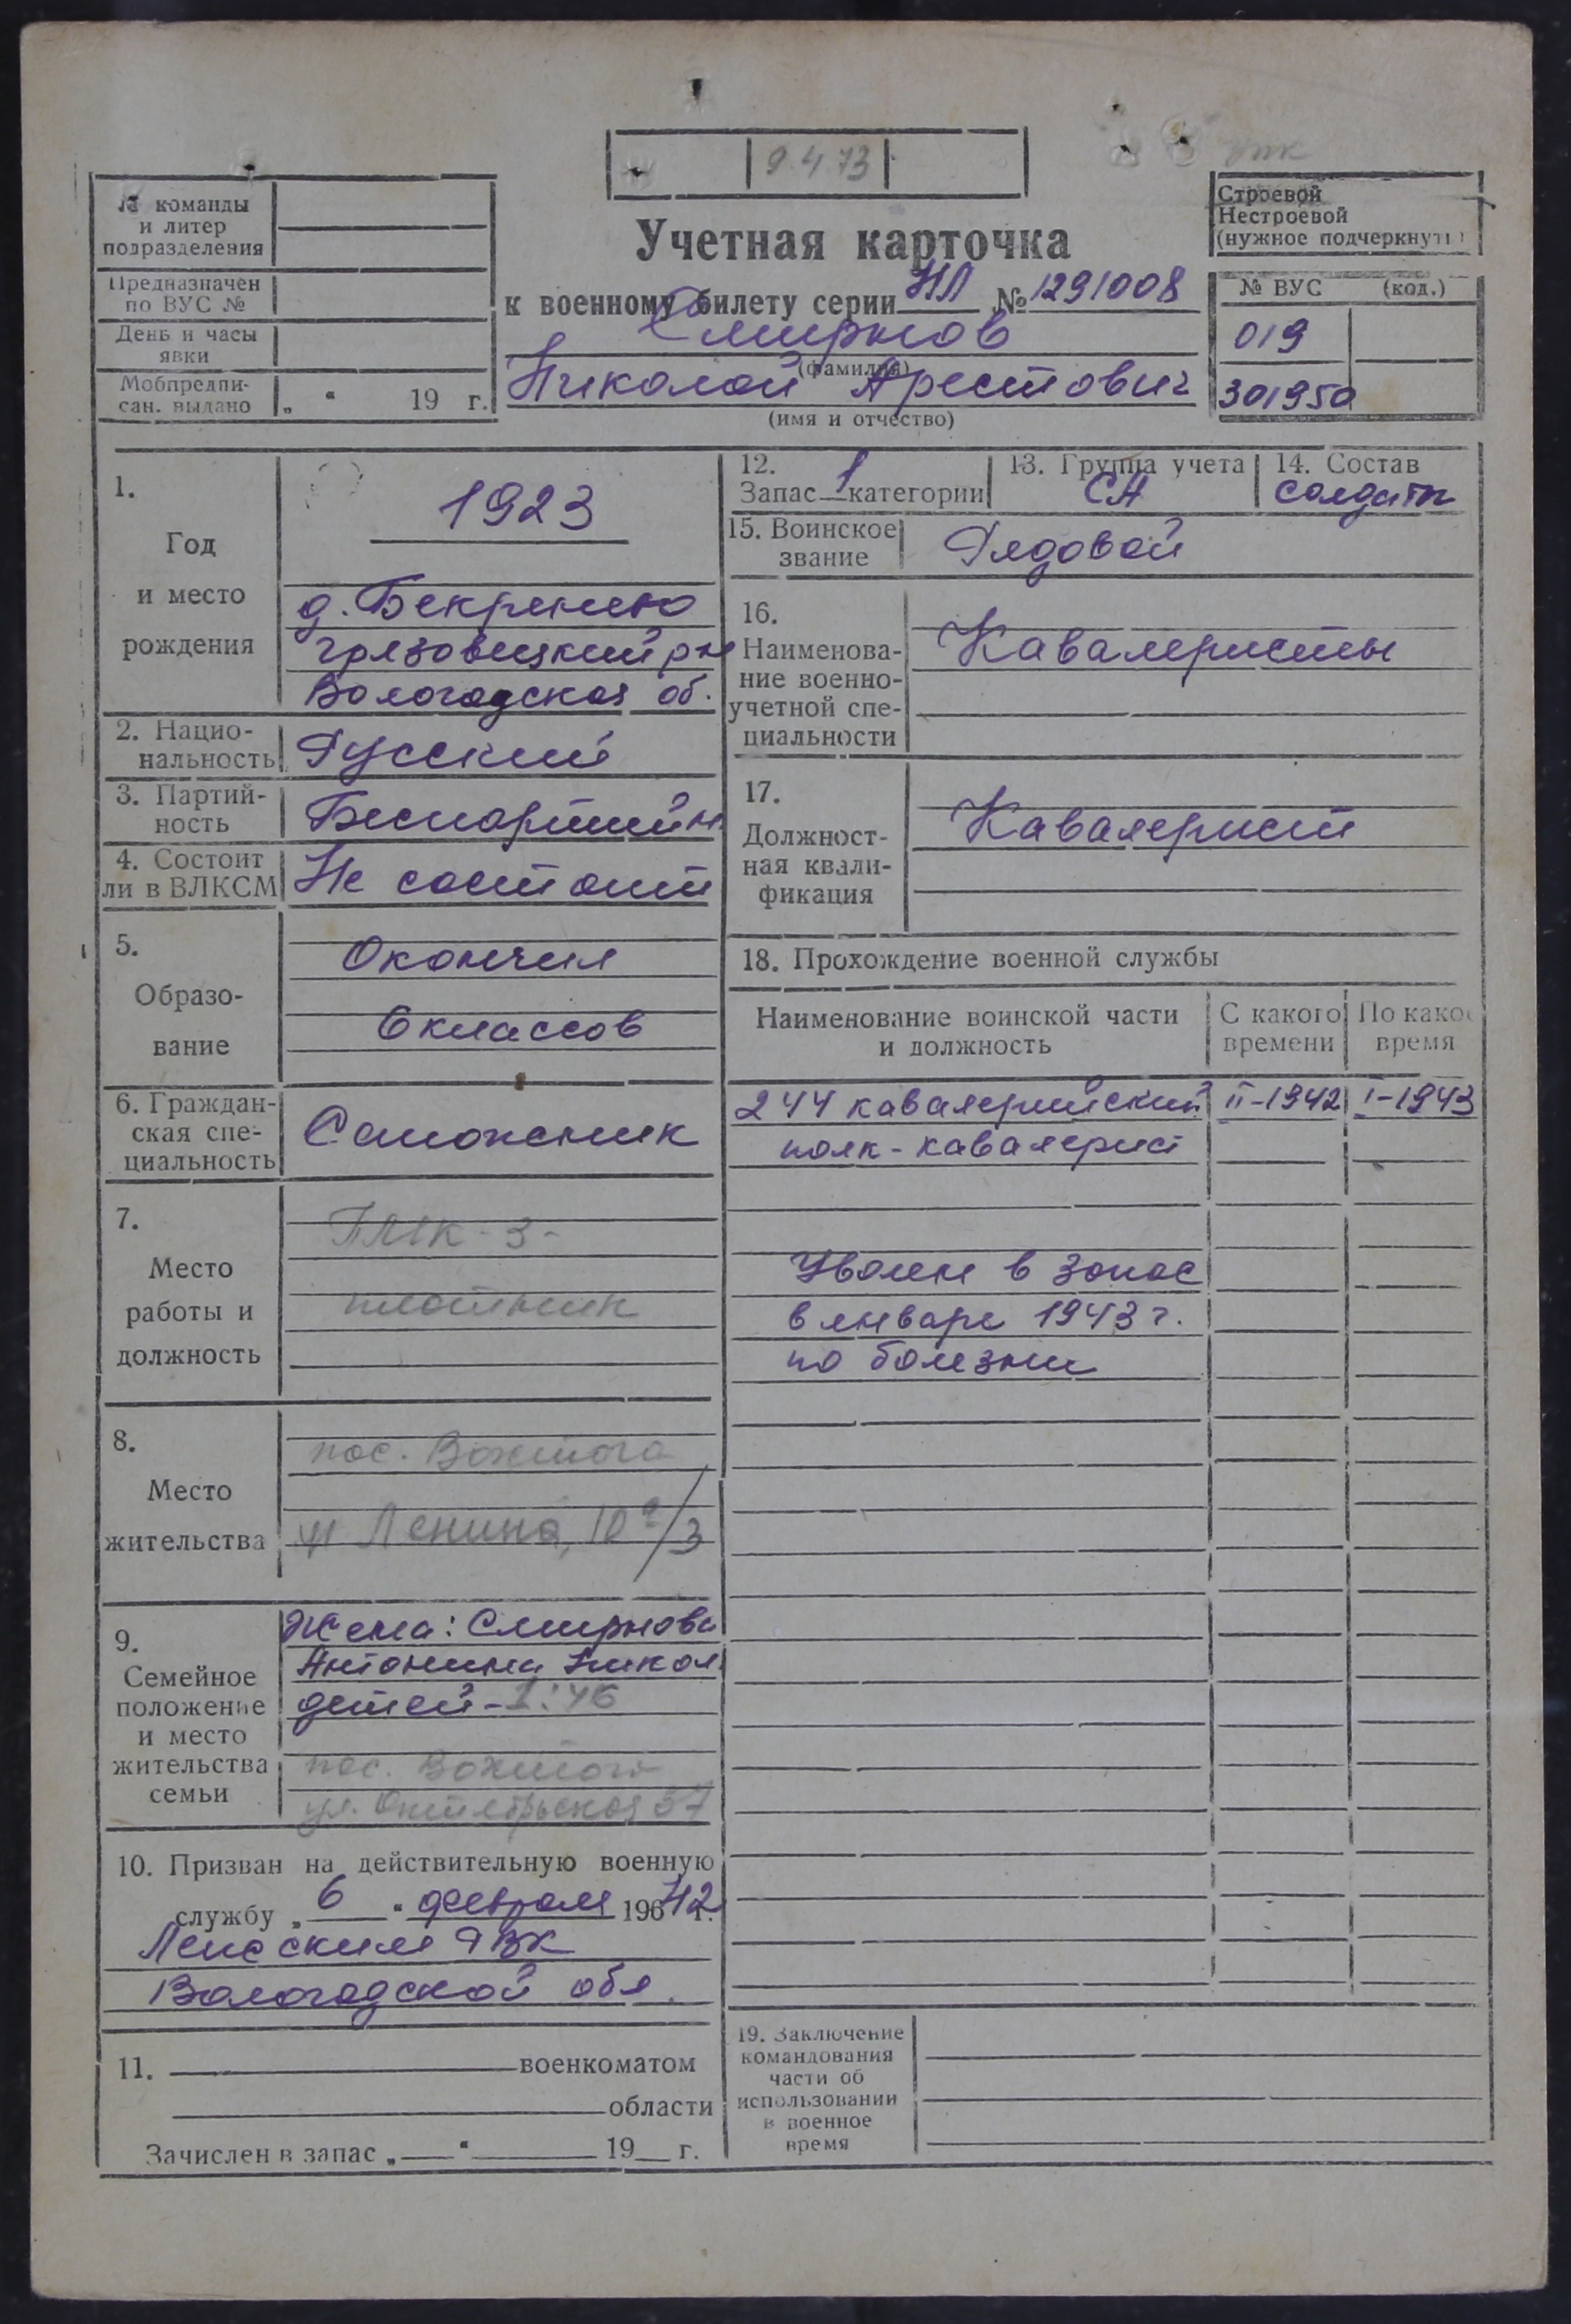 9.4.73
№ команды
и литер
подразделения
Предназначен
по ВУС №
День и часы
явки
Мобпредпи-
сан. выдано „ “ 19 г.
Учетная карточка
к военному билету серии НЛ № 1291008
Смирнов
(фамилия)
Николай Арестович
(имя и отчество)
Строевой
Нестроевой
(нужное подчеркнуть)
№ ВУС (код.)
019
301950
1.
Год
и место
рождения
1923
д. Бекренево
Грязовецкий р-н
Вологодская об.
2. Нацио-
нальность Русский
3. Партий-
ность Беспартийн.
4. Состоит
ли в ВЛКСМ Не состоит
5.
Образо-
вание
Окончил
6 классов
6. Граждан-
ская спе-
циальность
Сапожник
7.
Место
работы и
должность
ПМК-3-
плотник
8.
Место
жительства
пос. Вохтога
ул Ленина,
9.
Семейное
положение
и место
жительства
семьи
Жена: Смирнова
Антонина Никол
детей - 1: 46
пос. Вохтога
ул. Октябрьская 37
10. Призван на действительную военную
службу „ 6 “ февраля 196 42 г.
РВК
Вологодской обл.
11. военкоматом
области
Зачислен в запас „ “ 19 г.
12.
Запас 1 категории
13. Группа учета
СА
14. Состав
солдаты
15. Воинское
звание Рядовой
16.
Наименова-
ние военно-
учетной спе-
циальности
Кавалеристы
17.
Должност-
ная квали-
фикация
Кавалерист
18. Прохождение военной службы
Наименование воинской части
и должность
С какого
времени
По какое
время
244 кавалерийский II-1942 I-1943
полк - кавалерист
Уволен в запас
в январе 1943 г.
по болезни
19. Заключение
командования
части об
использовании
в военное
время